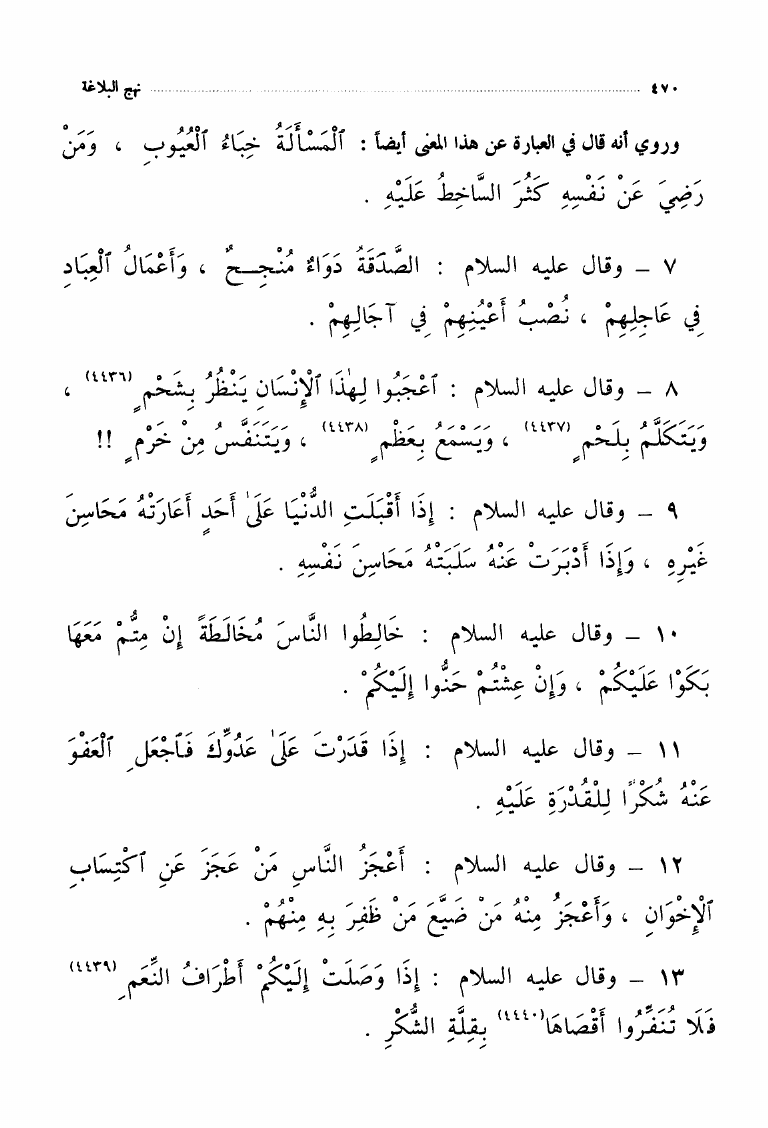 ٤٧٠ ........................................ نهج البلاغة
وروي أنه قال في العبارة عن هذا المعنى أيضاً : ٱلْمَسْأَلَةُ خِبَاءُ ٱلْعُيُوبِ ، وَمَنْ
رَضِيَ عَنْ نَفْسِهِ كَثُرَ السَّاخِطُ عَلَيْهِ .
٧ – وقال عليه السلام : الصَّدَقَةُ دَوَاءٌ مُنْجِحٌ ، وَأَعْمَالُ ٱلْعِبَادِ
فِي عَاجِلِهِمْ ، نُصْبُ أَعْيُنِهِمْ فِي آجَالِهِمْ .
٨ – وقال عليه السلام : ٱعْجَبُوا لِهٰذَا ٱلْإِنْسَانِ يَنْظُرُ بِشَحْمٍ (٤٤٣٦) ،
وَيَتَكَلَّمُ بِلَحْمٍ (٤٤٣٧) ، وَيَسْمَعُ بِعَظْمٍ (٤٤٣٨) ، وَيَتَنَفَّسُ مِنْ خَرْمٍ !!
٩ – وقال عليه السلام : إِذَا أَقْبَلَتِ الدُّنْيَا عَلَىٰ أَحَدٍ أَعَارَتْهُ مَحَاسِنَ
غَيْرِهِ ، وَإِذَا أَدْبَرَتْ عَنْهُ سَلَبَتْهُ مَحَاسِنَ نَفْسِهِ .
١٠ – وقال عليه السلام : خَالِطُوا النَّاسَ مُخَالَطَةً إِنْ مِتُّمْ مَعَهَا
بَكَوْا عَلَيْكُمْ ، وَإِنْ عِشْتُمْ حَنُّوا إِلَيْكُمْ .
١١ – وقال عليه السلام : إِذَا قَدَرْتَ عَلَىٰ عَدُوِّكَ فَٱجْعَلِ ٱلْعَفْوَ
عَنْهُ شُكْرًا لِلْقُدْرَةِ عَلَيْهِ .
١٢ – وقال عليه السلام : أَعْجَزُ النَّاسِ مَنْ عَجَزَ عَنِ ٱكْتِسَابِ
ٱلْإِخْوَانِ ، وَأَعْجَزُ مِنْهُ مَنْ ضَيَّعَ مَنْ ظَفِرَ بِهِ مِنْهُمْ .
١٣ – وقال عليه السلام : إِذَا وَصَلَتْ إِلَيْكُمْ أَطْرَافُ النِّعَمِ (٤٤٣٩)
فَلَا تُنَفِّرُوا أَقْصَاهَا (٤٤٤٠) بِقِلَّةِ الشُّكْرِ .